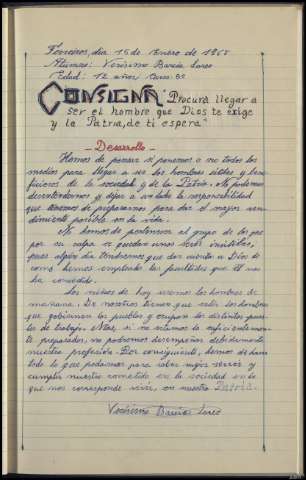 día 16 de Enero de 1968
Alumno: Verísimo Barcia Sarco
Edad: 12 años, Curso: 6º
CONSIGNA "Procura llegar a
ser el hombre que Dios te exige
y la Patria, de ti espera."
- Desarrollo -
Hemos de pensar si ponemos o no todos los
medios para llegar a ser los hombres útiles y bene-
ficiosos de la sociedad y de la Patria. No podemos
desentendernos y dejar a un lado la responsabilidad
que tenemos de prepararnos para dar el mayor ren-
dimiento posible en la vida.
No hemos de pertenecer al grupo de los que
por su culpa se quedan unos seres inútiles,
pues algún día tendremos que dar cuenta a Dios de
como hemos empleado las facultades que Él nos
ha concedido.
Los niños de hoy seremos los hombres de
mañana. De nosotros tienen que salir los hombres
que gobiernen los pueblos y ocupen los distintos pues-
tos de trabajo. Mas, si no estamos lo suficientemen-
te preparados, no podremos desempeñar debidamente
nuestra profesión. Por consiguiente, hemos de hacer
todo lo que podamos para saber mejor servir y
cumplir nuestro cometido en la sociedad en la
que nos corresponde vivir, en nuestra Patria.